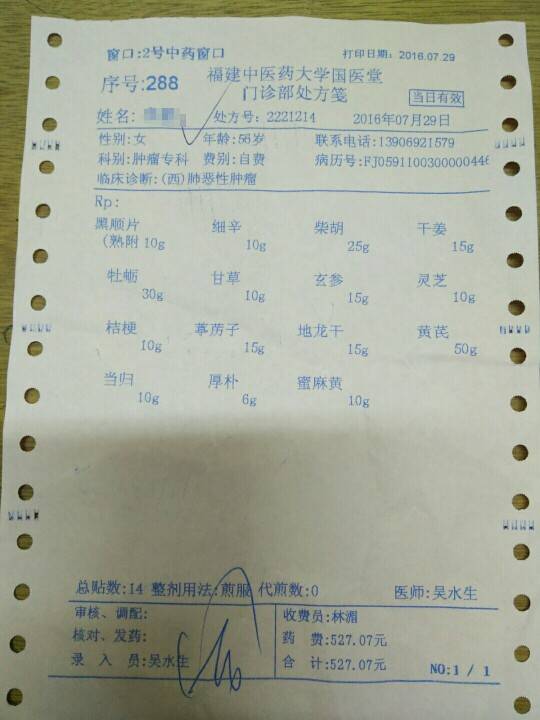 窗口:2号中药窗口
打印日期: 2016.07.29
序号:288
福建中医药大学国医堂
门诊部处方笺
当日有效
姓名:
处方号: 2221214
2016年07月29日
性别:女 年龄:56岁 联系电话:13906921579
科别:肿瘤专科 费别:自费 病历号:FJ059110030000044
临床诊断:(西)肺恶性肿瘤
Rp:
黑顺片 细辛 柴胡 干姜
(熟附 10g 10g 25g 15g
牡蛎 甘草 玄参 灵芝
30g 10g 15g 10g
桔梗 葶苈子 地龙干 黄芪
10g 15g 15g 50g
当归 厚朴 蜜麻黄
10g 6g 10g
总贴数:14 整剂用法:煎服 代煎数:0 医师:吴水生
审核、调配: 收费员:林湄
核对、发药: 药 费:527.07元
录 入 员:吴水生 合 计:527.07元 NO:1 / 1